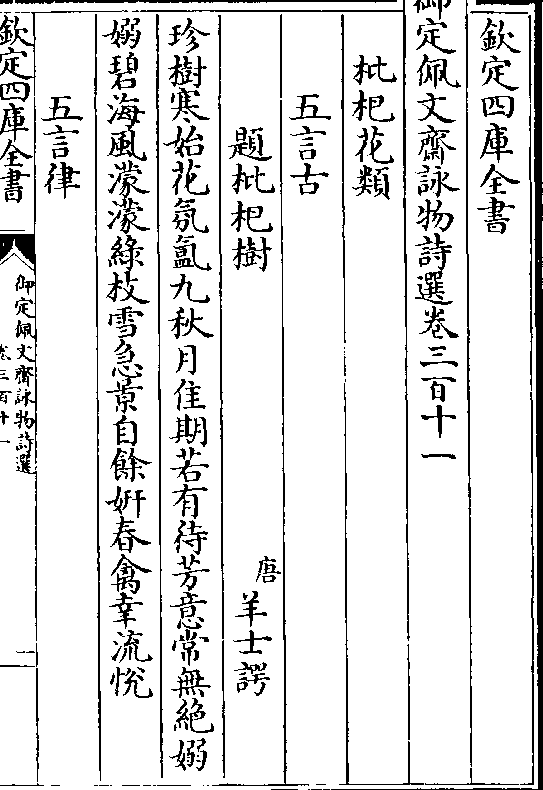 欽定四庫全書
御定佩文齋詠物詩選卷三百十一
枇杷花類
五言古
題枇杷樹
唐 羊士諤
珍樹寒始花氛氲九秋月佳期若有待芳意常無絶嫋
嫋碧海風濛濛綠枝雪急景自餘妍春禽幸流恱
五言律
欽定四庫全書
御定佩文齋詠物詩選
卷三百十一
一